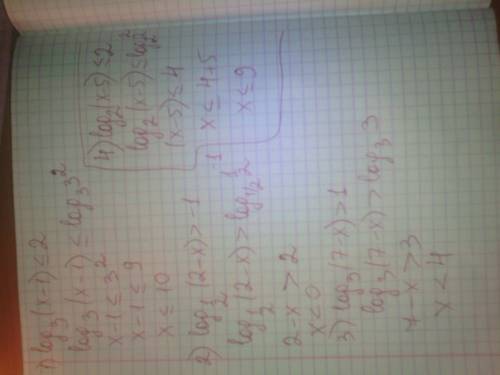 1) log₃(x-1) ≤ 2
log₃(x-1) ≤ log₃3²
x-1 ≤ 3²
x-1 ≤ 9
x ≤ 10
2) log_{1/2}(2-x) > -1
log_{1/2}(2-x) > log_{1/2} 1/2^{-1}
2-x > 2
x < 0
3) log₃(7-x) > 1
log₃(7-x) > log₃3
7-x > 3
x < 4
4) log₂(x-5) ≤ 2
log₂(x-5) ≤ log₂2²
(x-5) ≤ 4
x ≤ 4+5
x ≤ 9